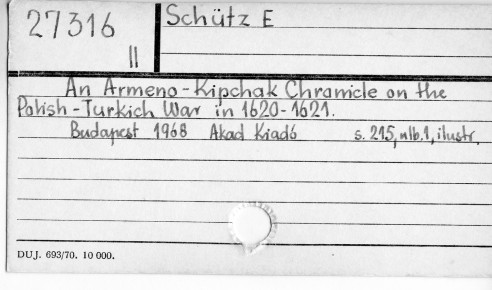 27316
II
Schütz E
An Armeno-Kipchak Chronicle on the
Polish-Turkich War in 1620-1621.
Budapest 1968 Akad Kiadó s. 215, nlb. 1, ilustr.
DUJ. 693/70. 10 000.